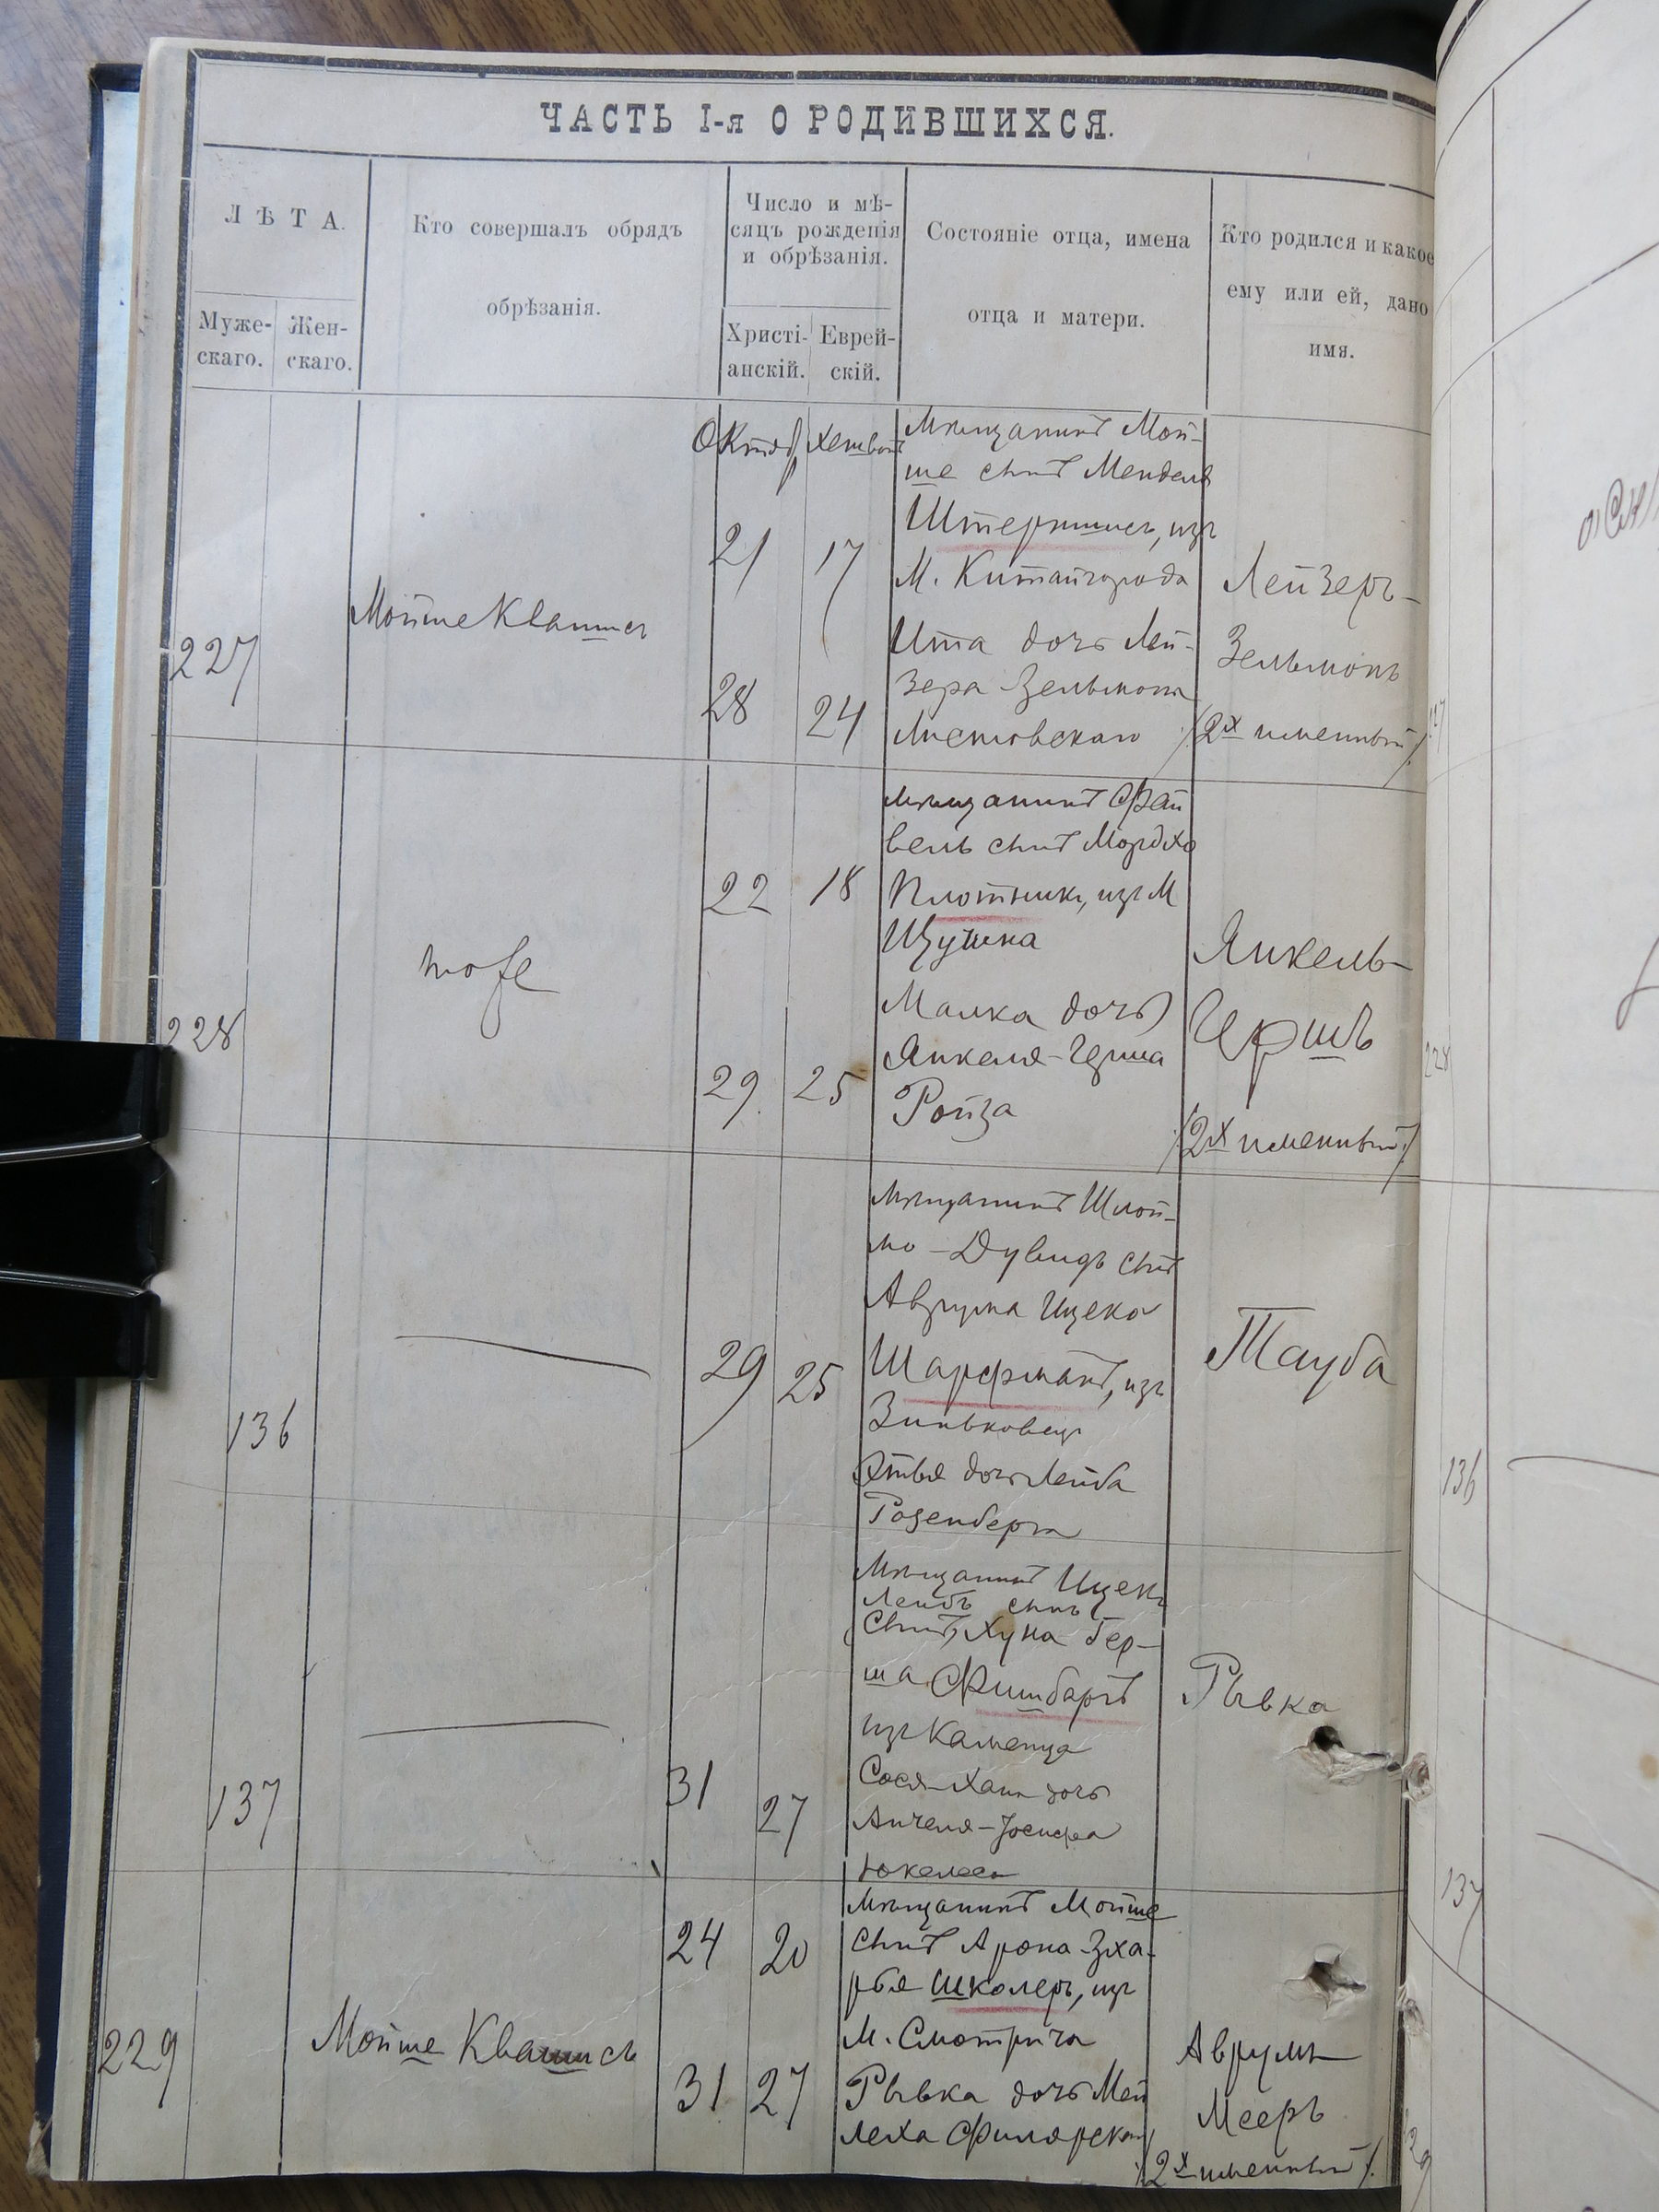 ЧАСТЬ I-я О РОДИВШИХСЯ.
ЛѢТА.
Муже-
скаго.
Жен-
скаго.
Кто совершалъ обрядъ
обрѣзанія.
Число и мѣ-
сяцъ рожденія
и обрѣзанія.
Христі-
анскій.
Еврей-
скій.
Состояніе отца, имена
отца и матери.
Кто родился и какое
ему или ей, дано
имя.
227
Мойше Квашисъ
Октяб
21
28
17
24
Мѣщанинъ Мой-
ше сынъ Менделя
Штерншисъ, изъ
М. Китайгорода
Ита дочь Лей-
зера Зельмона
Листовскаго
Лейзеръ-
Зельмонъ
/2х именный/
228
тоже
22
29
18
25
Мѣщанинъ Фай
вель сынъ Мордхо
Плотникъ, изъ М
Малка дочь
Янкеля-Герша
Ройза
Янкель-
Гершъ
/2х именный/
136
29
25
Мѣщанинъ Шлой-
мо-Дувидъ сынъ
Аврума Ицека
Шарфманъ, изъ
Зиньковецъ
Этья дочь Лейба
Розенберга
Тауба
137
31
27
Мѣщанинъ Ицекъ
Лейбъ сынъ
Сынъ, Хуна Гер-
ша Фишбаргъ
изъ Каменца
Сося-Хана дочь
Анчеля-Іосифа
Юкелеса
Рывка
229
Мойше Квашисъ
24
31
20
27
Мѣщанинъ Мойше
сынъ Арона-Зха-
рья Школеръ, изъ
М. Смотрича
Рывка дочь Мей
леха Филярскаго
Аврумъ
Мееръ
/2х именный/
136
137